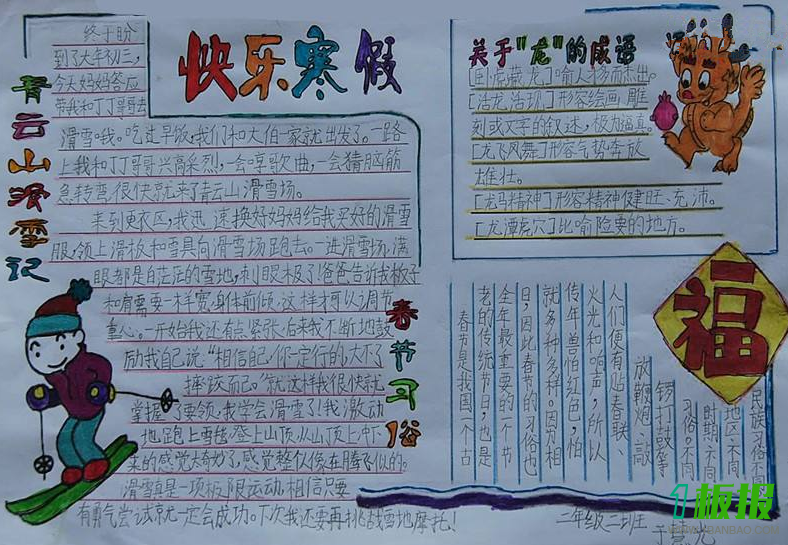 快乐寒假
青云山滑雪记
终于盼
到了大年初三,
今天妈妈答应
带我和丁丁哥哥去
滑雪哦。吃过早饭,我们和大伯一家就出发了。一路
上我和丁丁哥哥兴高采烈,一会哼歌曲,一会猜脑筋
急转弯,很快就来了青云山滑雪场。
来到更衣区,我迅速换好妈妈给我买好的滑雪
服,领上滑板和雪具向滑雪场跑去。一进滑雪场,满
眼都是白茫茫的雪地,刺眼极了!爸爸告诉我板子
和肩需要一样宽,身体前倾,这样才可以调节
重心。一开始我还有点紧张,后来我不断地鼓
励我自己说“相信自己,你一定行的,大不了
摔跤而已。”就这样我很快就
掌握了要领,我学会滑雪了!我激动
地跑上雪毯,登上山顶,从山顶上冲下
来的感觉太奇妙了,感觉整个像在腾飞似的。
滑雪真是一项极限运动,相信只要
有勇气尝试就一定会成功。下次我还要再挑战雪地摩托!
关于"龙"的成语
[卧虎藏龙]喻人才多而杰出。
[活龙活现]形容绘画、雕
刻或文字的叙述,极为逼真。
[龙飞凤舞]形容气势奔放
雄壮。
[龙马精神]形容精神健旺、充沛。
[龙潭虎穴]比喻险要的地方。
福
春节习俗
春节是我国一个古
老的传统节日,也是
全年最重要的一个节
日,因此春节的习俗也
就多种多样。因为相
传年兽怕红色,怕
火光和响声,所以
人们便有贴春联、
放鞭炮、敲
锣打鼓等
习俗。不同
时期、不同
地区、不同
民族习俗不
二年级二班
板报